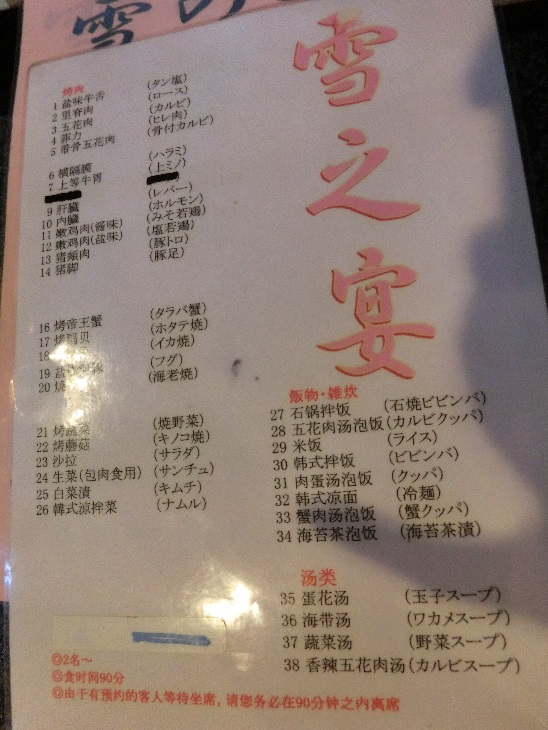 雪之宴
烤肉
1 盐味牛舌 (タン塩)
2 里脊肉 (ロース)
3 五花肉 (カルビ)
4 菲力 (ヒレ肉)
5 带骨五花肉 (骨付カルビ)
6 横隔膜 (ハラミ)
7 上等牛胃 (上ミノ)
9 肝臓 (レバー)
10 内臓 (ホルモン)
11 嫩鸡肉(酱味) (みそ若鶏)
12 嫩鸡肉(盐味) (塩若鶏)
13 猪颊肉 (豚トロ)
14 猪脚 (豚足)
16 烤帝王蟹 (タラバ蟹)
17 烤 贝 (ホタテ焼)
18 (イカ焼)
19 (フグ)
20 烧 (海老焼)
21 烤蔬菜 (焼野菜)
22 烤蘑菇 (キノコ焼)
23 沙拉 (サラダ)
24 生菜(包肉食用) (サンチュ)
25 白菜漬 (キムチ)
26 韓式涼拌菜 (ナムル)
飯物・雑炊
27 石锅拌饭 (石焼ビビンバ)
28 五花肉汤泡饭 (カルビクッパ)
29 米饭 (ライス)
30 韩式拌饭 (ビビンバ)
31 肉蛋汤泡饭 (クッパ)
32 韩式凉面 (冷麺)
33 蟹肉汤泡饭 (蟹クッパ)
34 海苔茶泡饭 (海苔茶漬)
汤类
35 蛋花汤 (玉子スープ)
36 海带汤 (ワカメスープ)
37 蔬菜汤 (野菜スープ)
38 香辣五花肉汤 (カルビスープ)
◎2名～
◎食时间90分
◎由于有预约的客人等待坐席，请您务必在90分钟之内离席